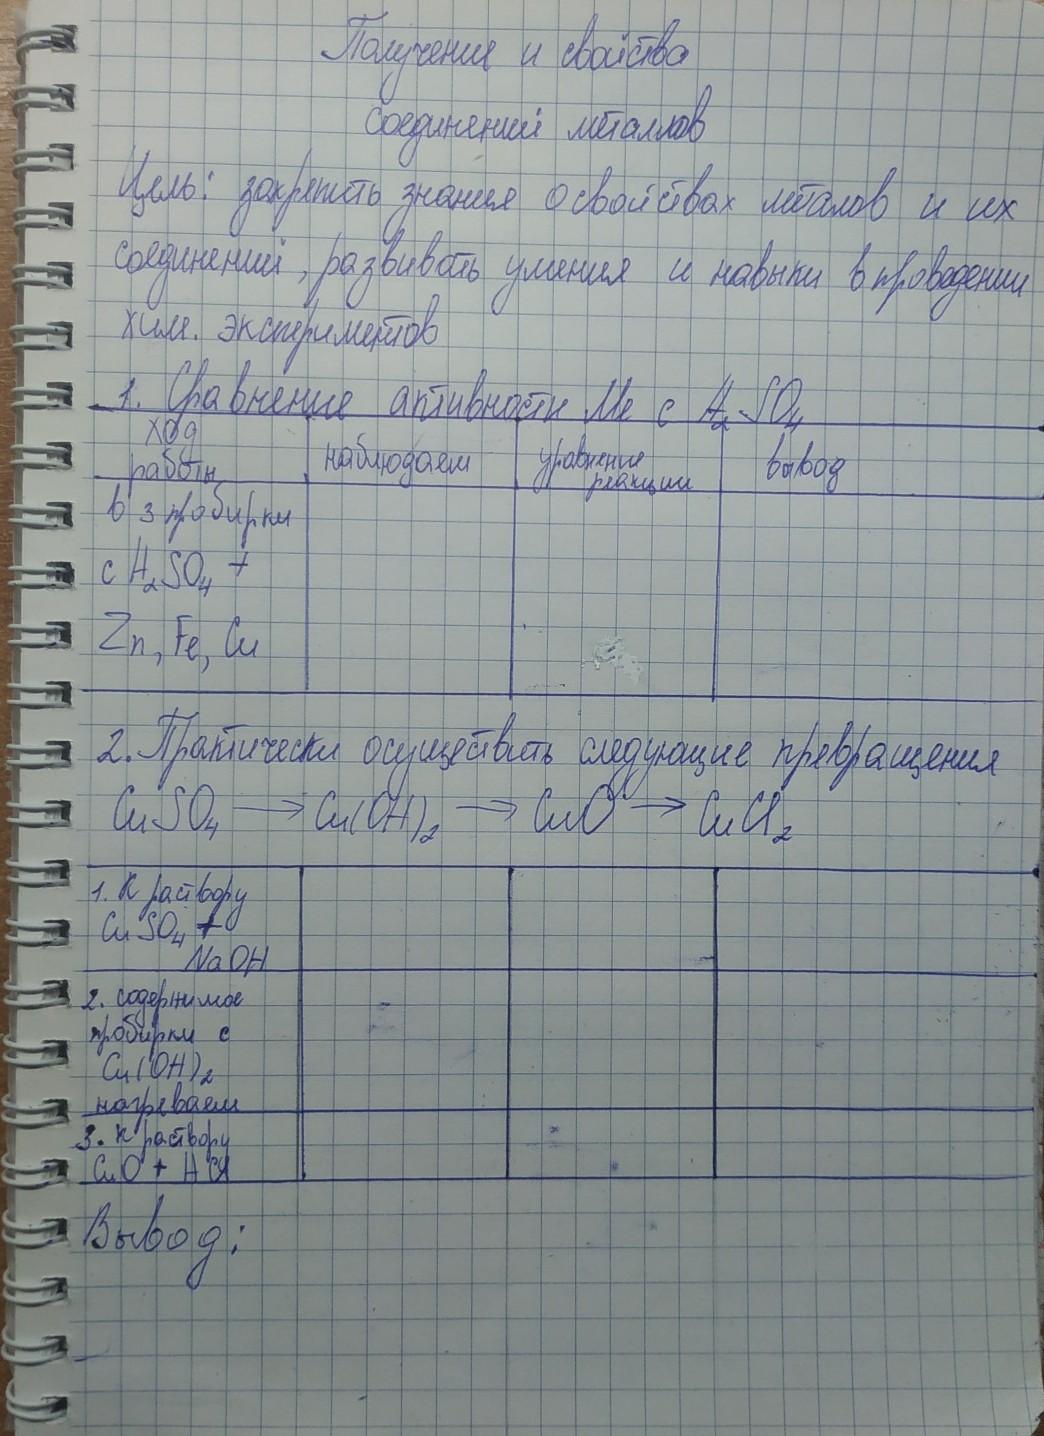 Получение и свойства
соединений металлов
Цель: закрепить знания о свойствах металов и их
соединений, развивать умения и навыки в проведении
хим. экспериментов
1. Сравнение активности Ме с H₂SO₄
ход работы наблюдаем уравнение реакции вывод
в 3 пробирки
с H₂SO₄ +
Zn, Fe, Cu
2. Практически осуществить следующие превращения
CuSO₄ → Cu(OH)₂ → CuO → CuCl₂
1. К раствору
CuSO₄ +
NaOH
2. содержимое
пробирки с
Cu(OH)₂
нагреваем
3. к раствору
CuO + HCl
Вывод: